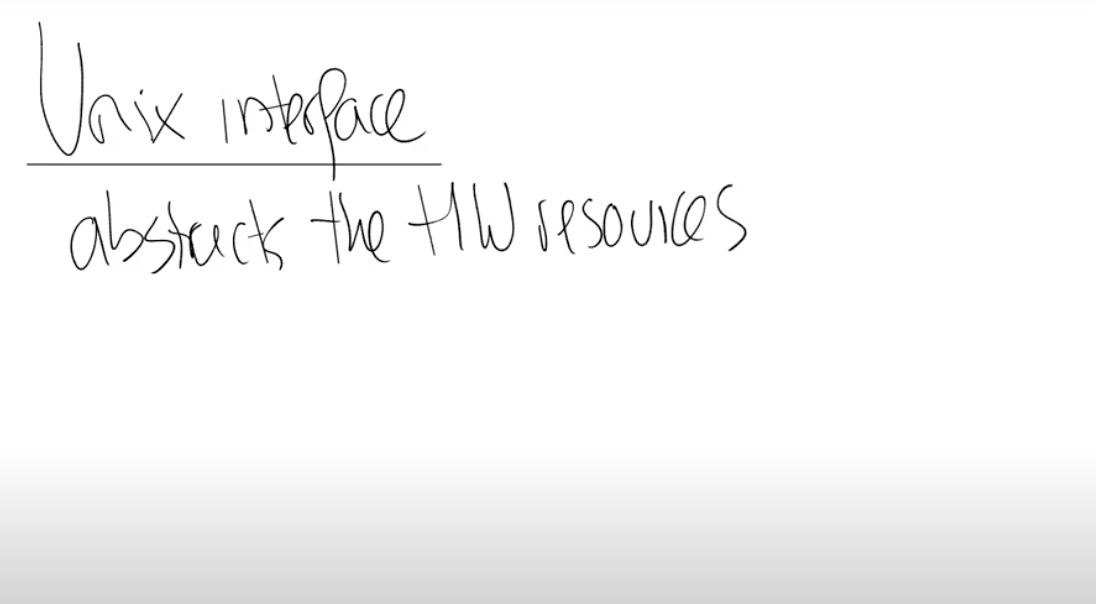 Unix interface
abstracts the HW resources